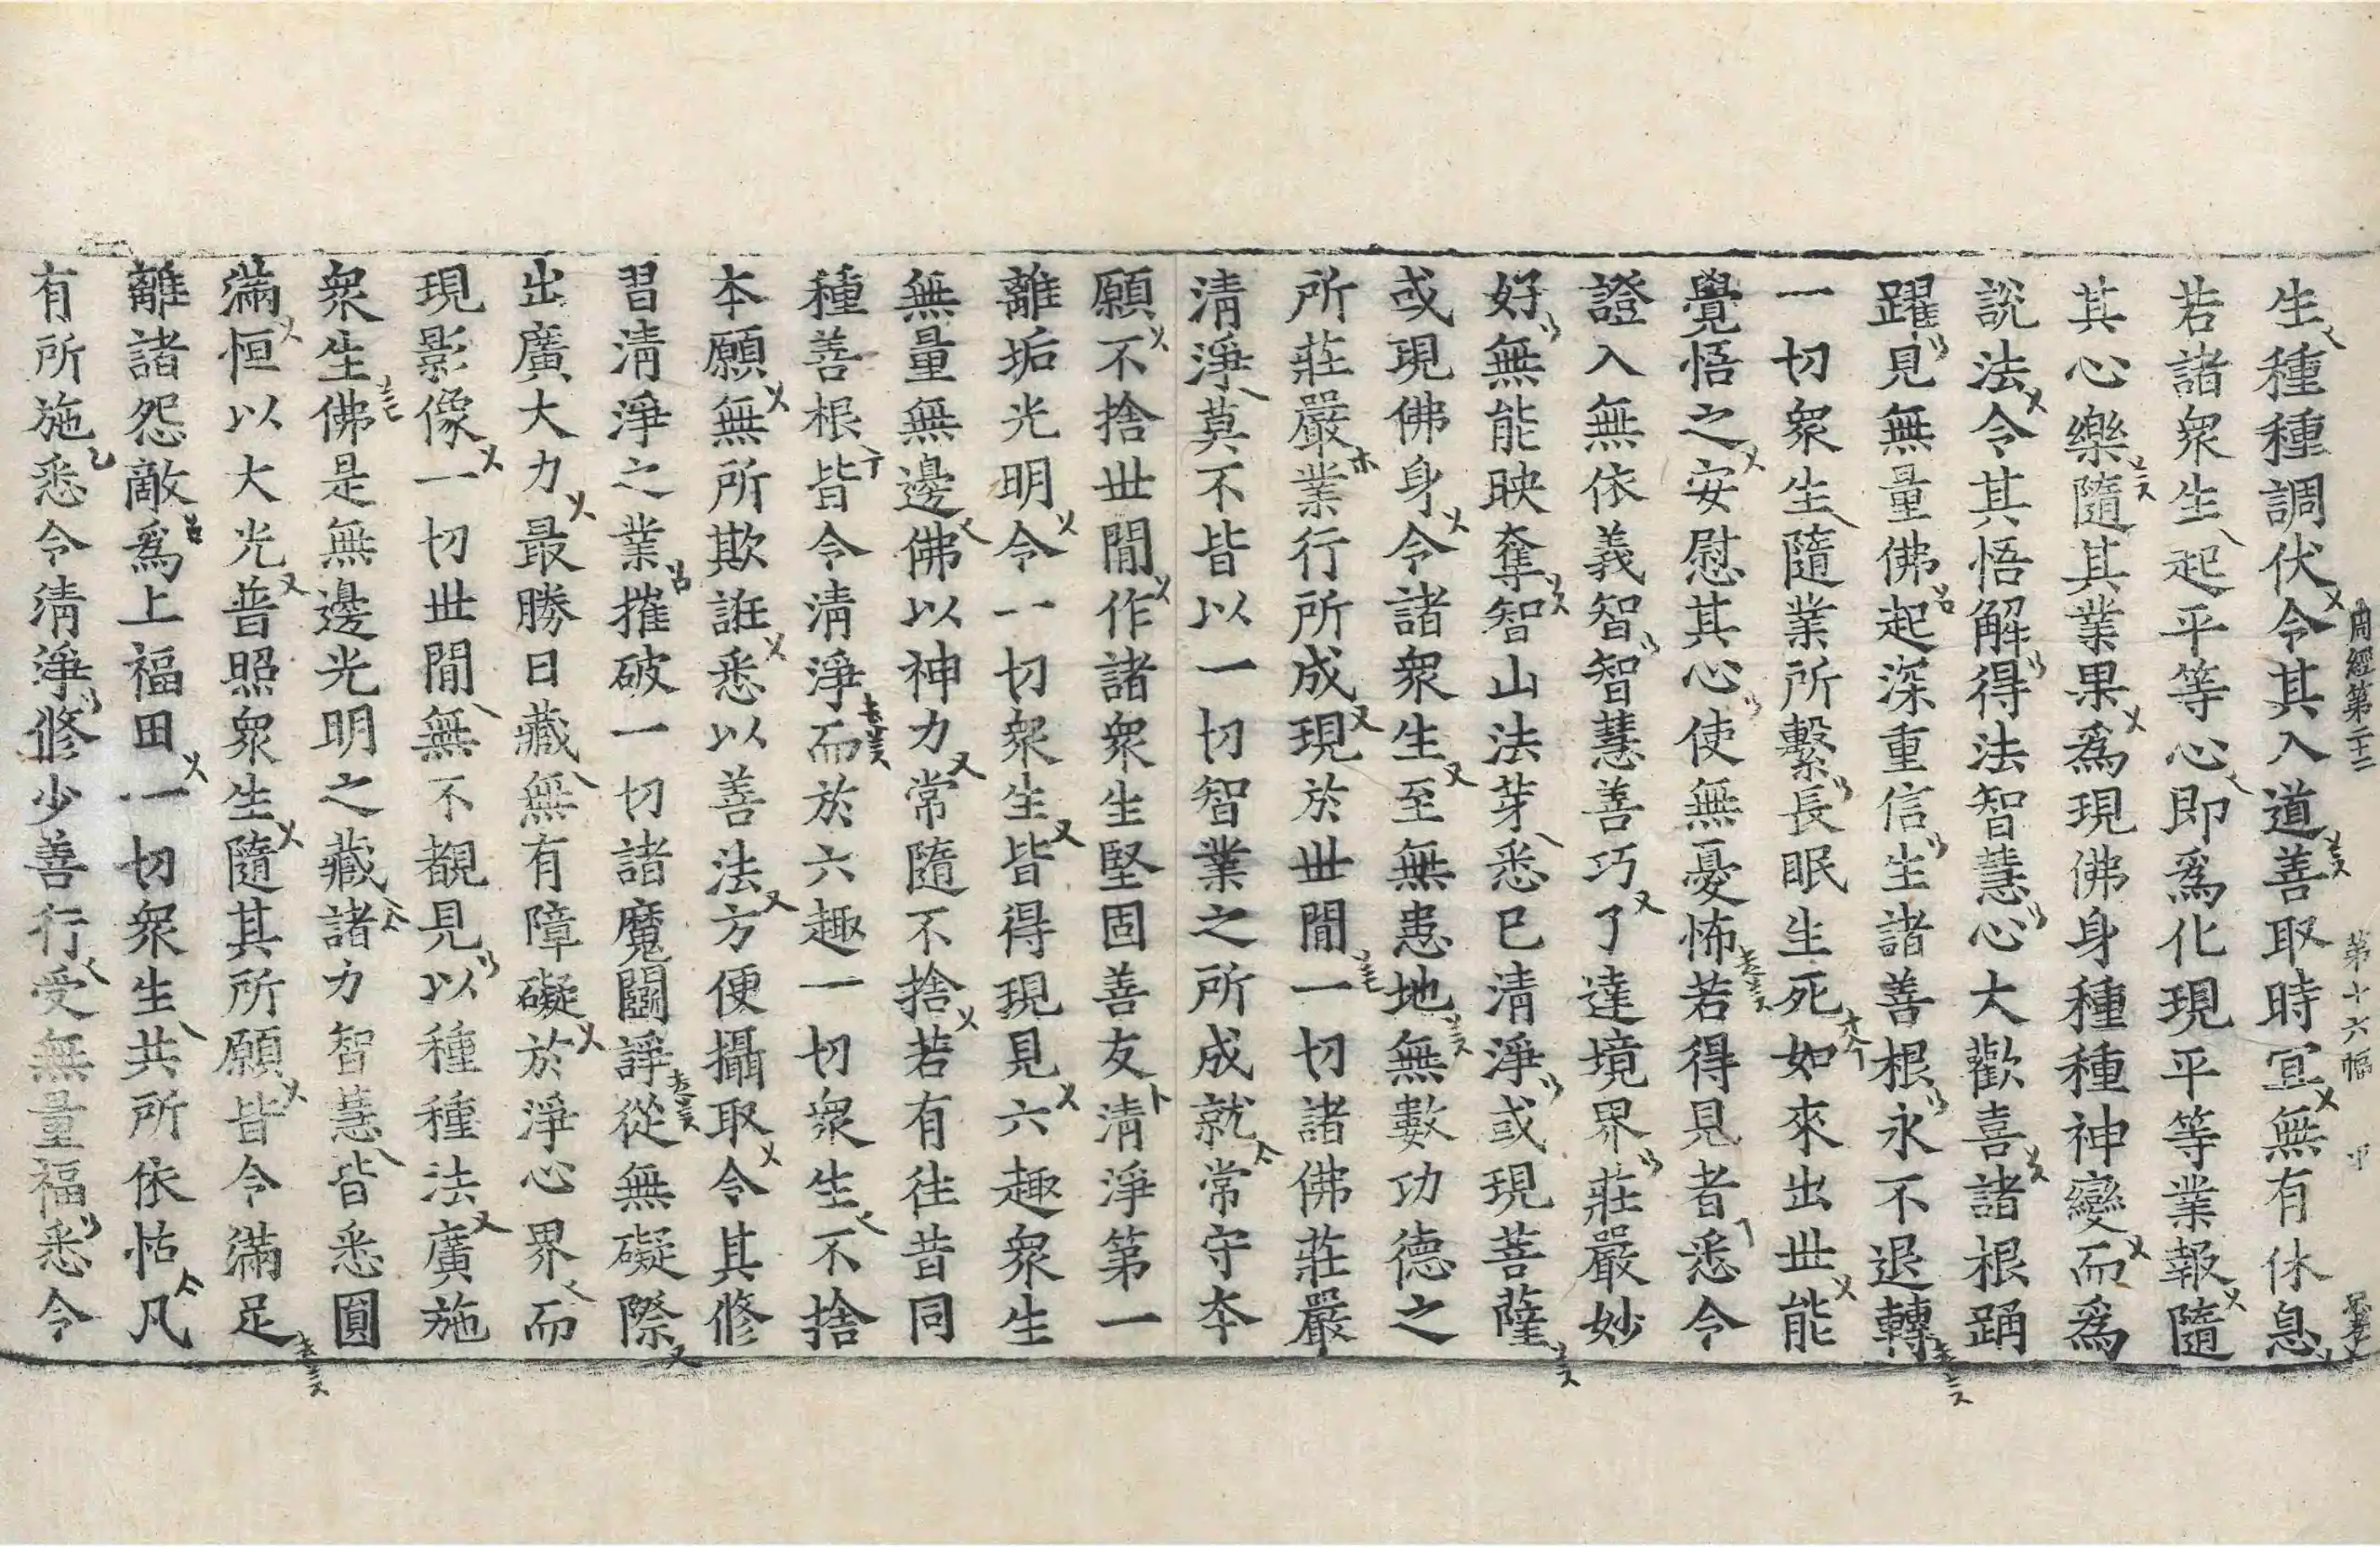 生種種調伏令其入道善取時宜無有休息
周經第二十二 第十六幅
若諸衆生起平等心即爲化現平等業報隨
其心樂隨其業果爲現佛身種種神變而爲
說法令其悟解得法智慧心大歡喜諸根踊
躍見無量佛起深重信生諸善根永不退轉
一切衆生隨業所繫長眠生死如來出世能
覺悟之安慰其心使無憂怖若得見者悉令
證入無依義智智慧善巧了達境界莊嚴妙
好無能映奪智山法芽悉已清淨或現菩薩
或現佛身令諸衆生至無患地無數功德之
所莊嚴業行所成現於世間一切諸佛莊嚴
清淨莫不皆以一切智業之所成就常守本
願不捨世間作諸衆生堅固善友清淨第一
離垢光明令一切衆生皆得現見六趣衆生
無量無邊佛以神力常隨不捨若有往昔同
種善根皆令清淨而於六趣一切衆生不捨
本願無所欺誑悉以善法方便攝取令其修
習清淨之業摧破一切諸魔鬪諍從無礙際
出廣大力最勝日藏無有障礙於淨心界而
現影像一切世間無不覩見以種種法廣施
衆生佛是無邊光明之藏諸力智慧皆悉圓
滿恒以大光普照衆生隨其所願皆令滿足
離諸怨敵爲上福田一切衆生共所依怙凡
有所施悉令清淨修少善行受無量福悉令